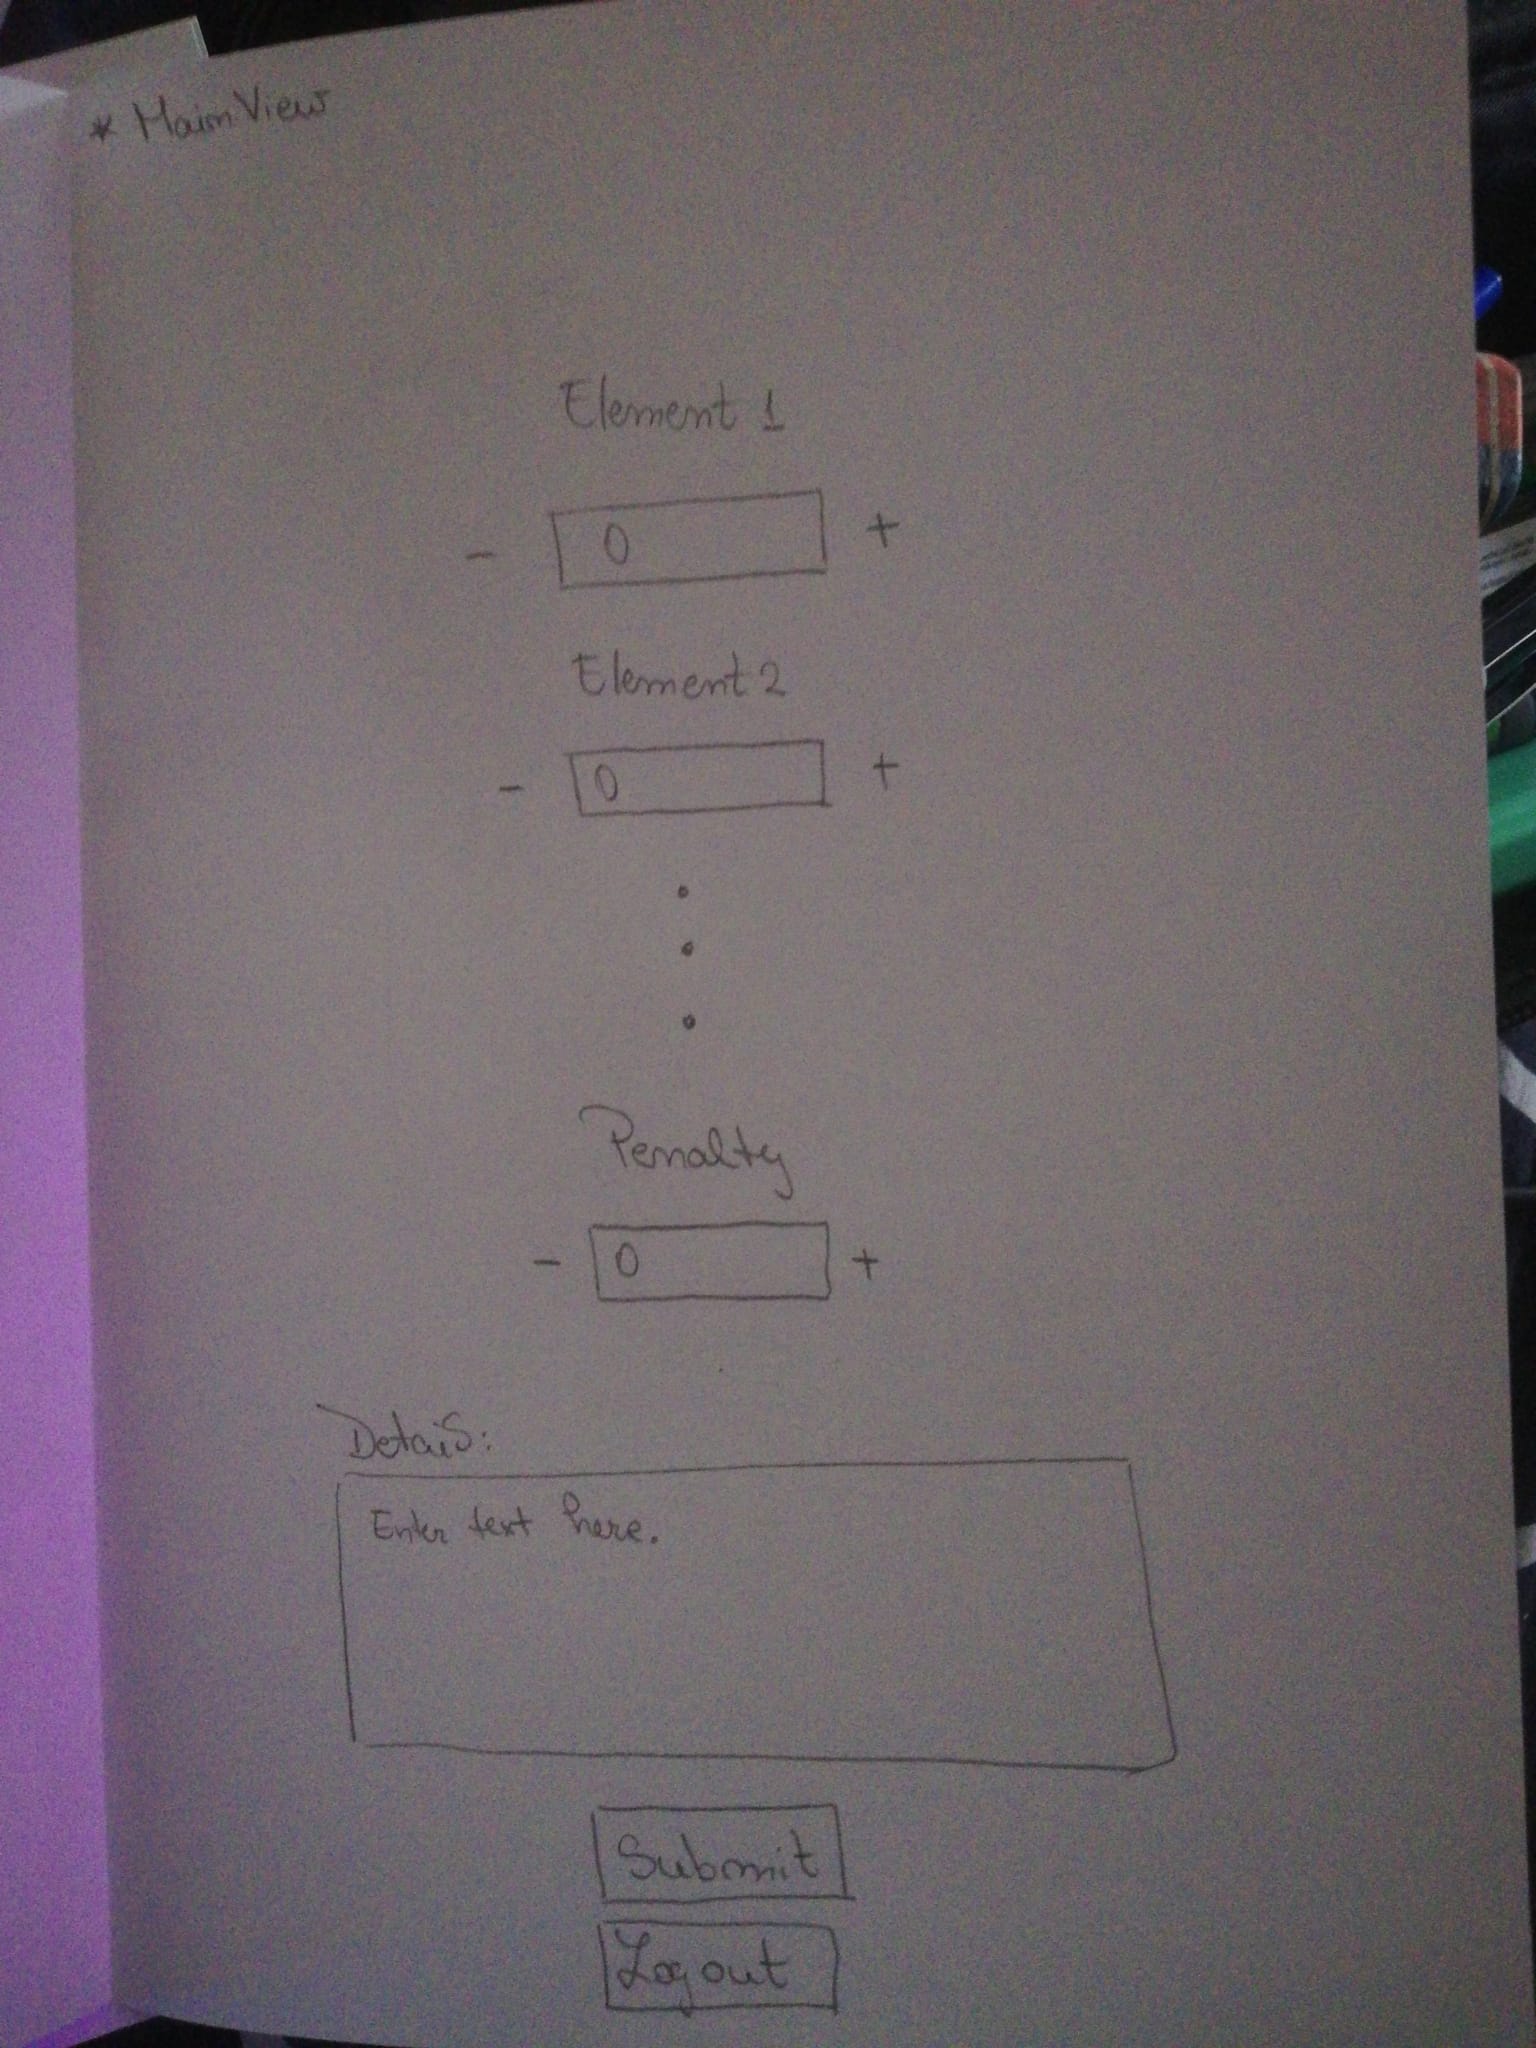 * Main View
Element 1
- 0 +
Element 2
- 0 +
Penalty
- 0 +
Detais:
Enter text here.
Submit
Logout